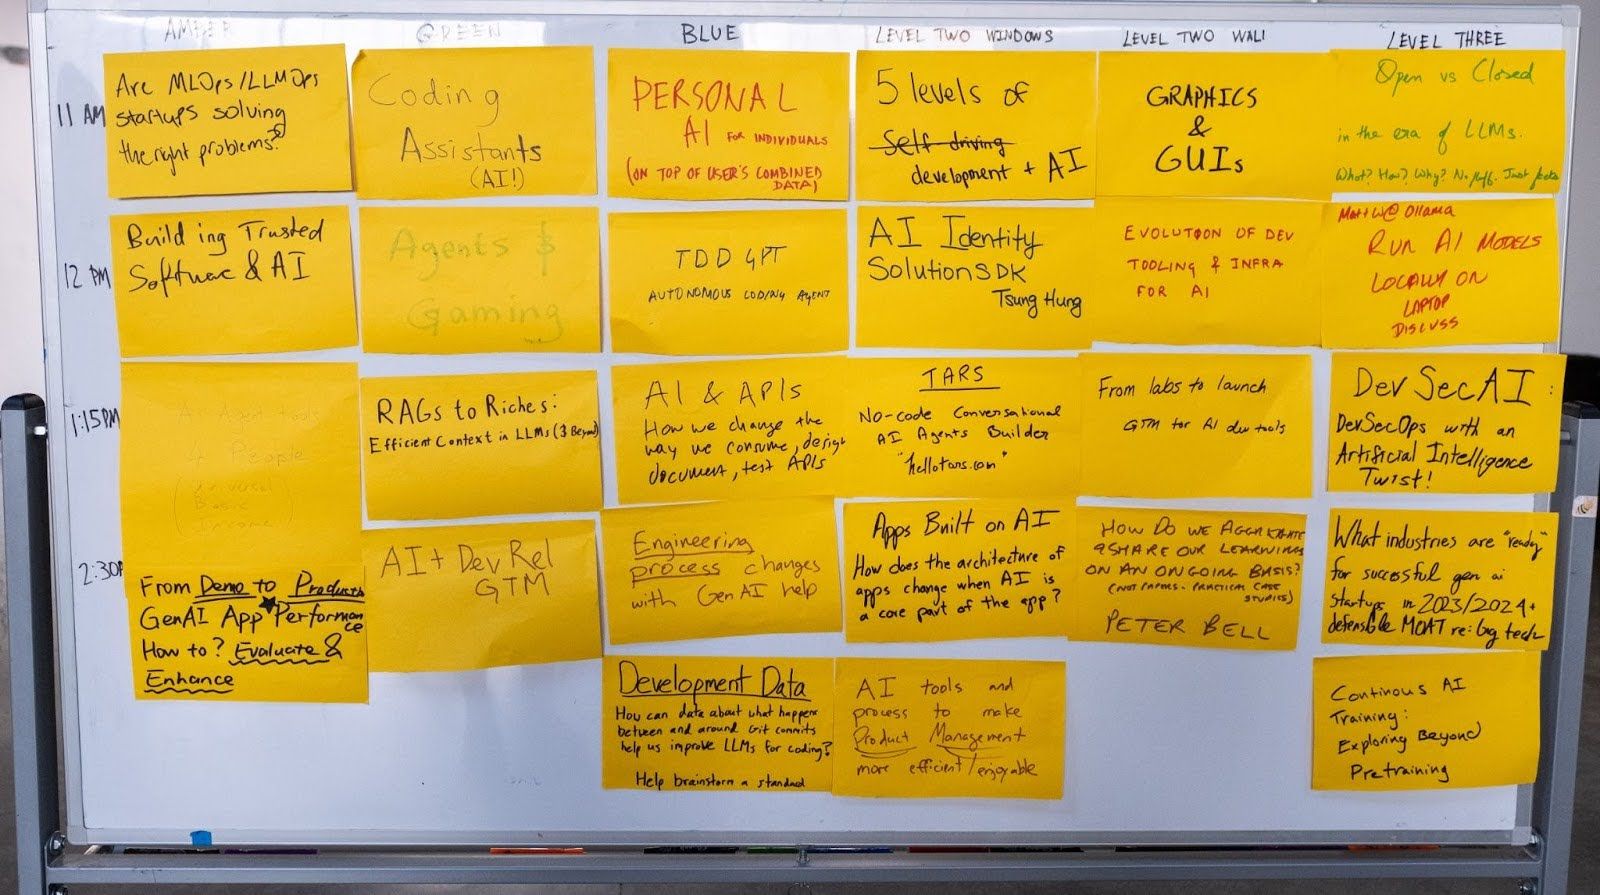 AMBER
GREEN
BLUE
LEVEL TWO WINDOWS
LEVEL TWO WALL
LEVEL THREE
11 AM
Are MLOps/LLMOps
startups solving
the right problems?
Coding
Assistants
(AI!)
PERSONAL
AI FOR INDIVIDUALS
(ON TOP OF USER'S COMBINED
DATA)
5 levels of
Self driving
development + AI
GRAPHICS
&
GUIs
Open vs Closed
in the era of LLMs.
What? How? Why? No fluff. Just facts
12 PM
Building Trusted
Software & AI
Agents &
Gaming
TDD GPT
AUTONOMOUS CODING AGENT
AI Identity
Solution SDK
Tsung Hung
EVOLUTION OF DEV
TOOLING & INFRA
FOR AI
Matt W@ Ollama
RUN AI MODELS
LOCALLY ON
LAPTOP
DISCUSS
1:15PM
AI Agent tools
4 People
(Universal
Basic
Income)
RAGs to Riches:
Efficient Context in LLMs (& Beyond)
AI & APIs
How we change the
way we consume, design
document, test APIs
TARS
No-code Conversational
AI Agents Builder
"hellotars.com"
From labs to launch
GTM for AI dev tools
DevSecAI:
DevSecOps with an
Artificial Intelligence
Twist!
2:30P
From Demo to Products
GenAI App Performance
How to? Evaluate &
Enhance
AI + DevRel
GTM
Engineering
process changes
with GenAI help
Apps Built on AI
How does the architecture of
apps change when AI is
a core part of the app?
HOW DO WE AGGREGATE
& SHARE OUR LEARNINGS
ON AN ONGOING BASIS?
(NOT PAPERS - PRACTICAL CASE
STUDIES)
PETER BELL
What industries are "ready"
for successful gen ai
startups in 2023/2024 +
defensible MOAT re: big tech
Development Data
How can data about what happens
between and around Git commits
help us improve LLMs for coding?
Help brainstorm a standard
AI tools and
process to make
Product Management
more efficient/enjoyable
Continous AI
Training:
Exploring Beyond
Pretraining